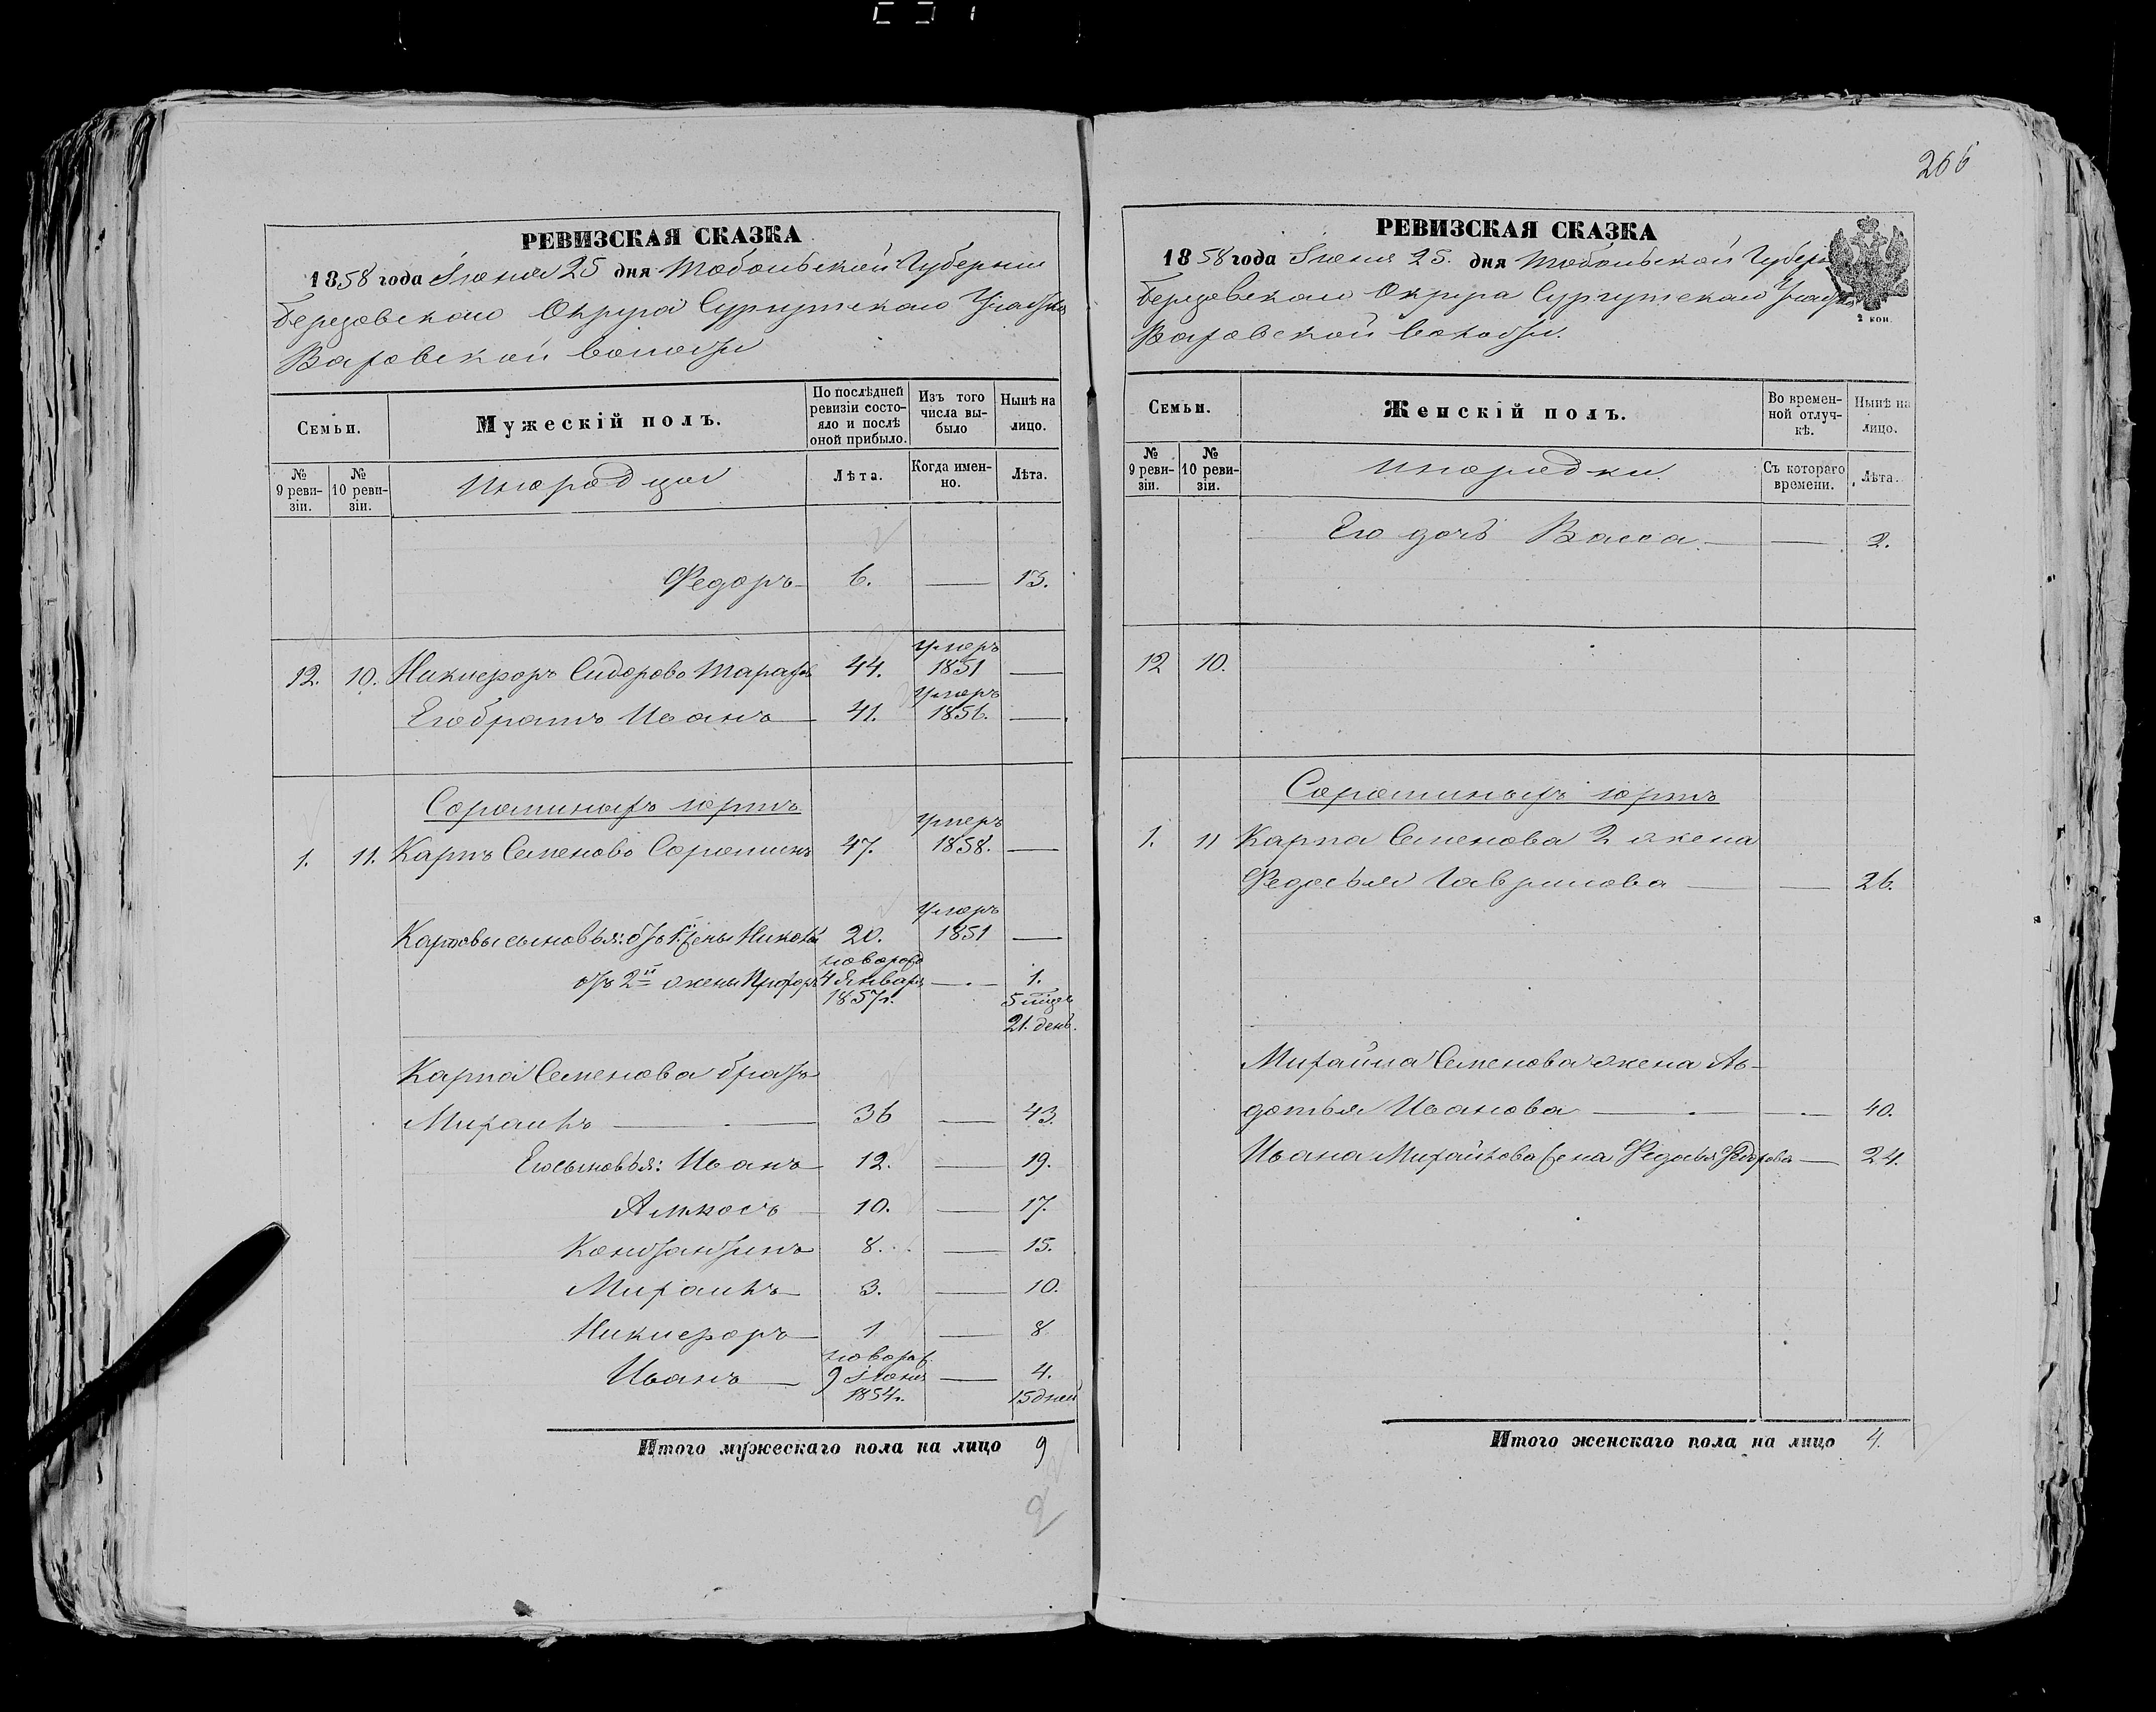 266
РЕВИЗСКАЯ СКАЗКА
1858 года Іюня 25 дня Тобольской Губерніи
Березовскаго Округа Сургутскаго Участка
Ваховской волости
Семьи.
Мужескій полъ.
По послѣдней ревизіи состояло и послѣ оной прибыло.
Изъ того числа выбыло
Нынѣ на лицо.
№ 9 ревизіи.
№ 10 ревизіи.
Инородцы
Лѣта.
Когда именно.
Лѣта.
Федоръ 6. — 13.
12. 10. Никифоръ Сидоровъ 44. умеръ 1851 —
Его братъ Иванъ 41. умеръ 1856. —
Соромины́хъ юртъ
1. 11. Карпъ Семеновъ Сороминъ 47. умеръ 1858. —
Карповы сыновья: отъ 1. жены Николай 20. умеръ 1851 —
отъ 2й жены новорож 4 Января 1857г. — 1. 5 мѣсяц 21. день.
Карпа Семенова братъ
Михаилъ — 36 — 43.
Его сыновья: Иванъ 12. — 19.
Амносъ 10. — 17.
Константинъ 8. — 15.
Михаилъ 3. — 10.
Никифоръ 1 — 8
Иванъ новорож. 9 Іюня 1854г. — 4. 15 дней
Итого мужескаго пола на лицо 9
2
РЕВИЗСКАЯ СКАЗКА
1858 года Іюня 25. дня Тобольской Губерн
Березовскаго Округа Сургутскаго Участка
Ваховской волости.
2 коп.
Семьи.
Женскій полъ.
Во временной отлучкѣ.
Нынѣ на лицо.
№ 9 ревизіи.
№ 10 ревизіи.
Инородки
Съ котораго времени.
Лѣта.
Его дочь Васса — 2.
12 10.
Сороминыхъ юртъ
1. 11 Карпа Семенова 2 жена
Федосья Гаврилова — 26.
Михайла Семенова жена Ав-
дотья Иванова — 40.
Ивана Михайлова жена Федосья Федорова — 24.
Итого женскаго пола на лицо 4.